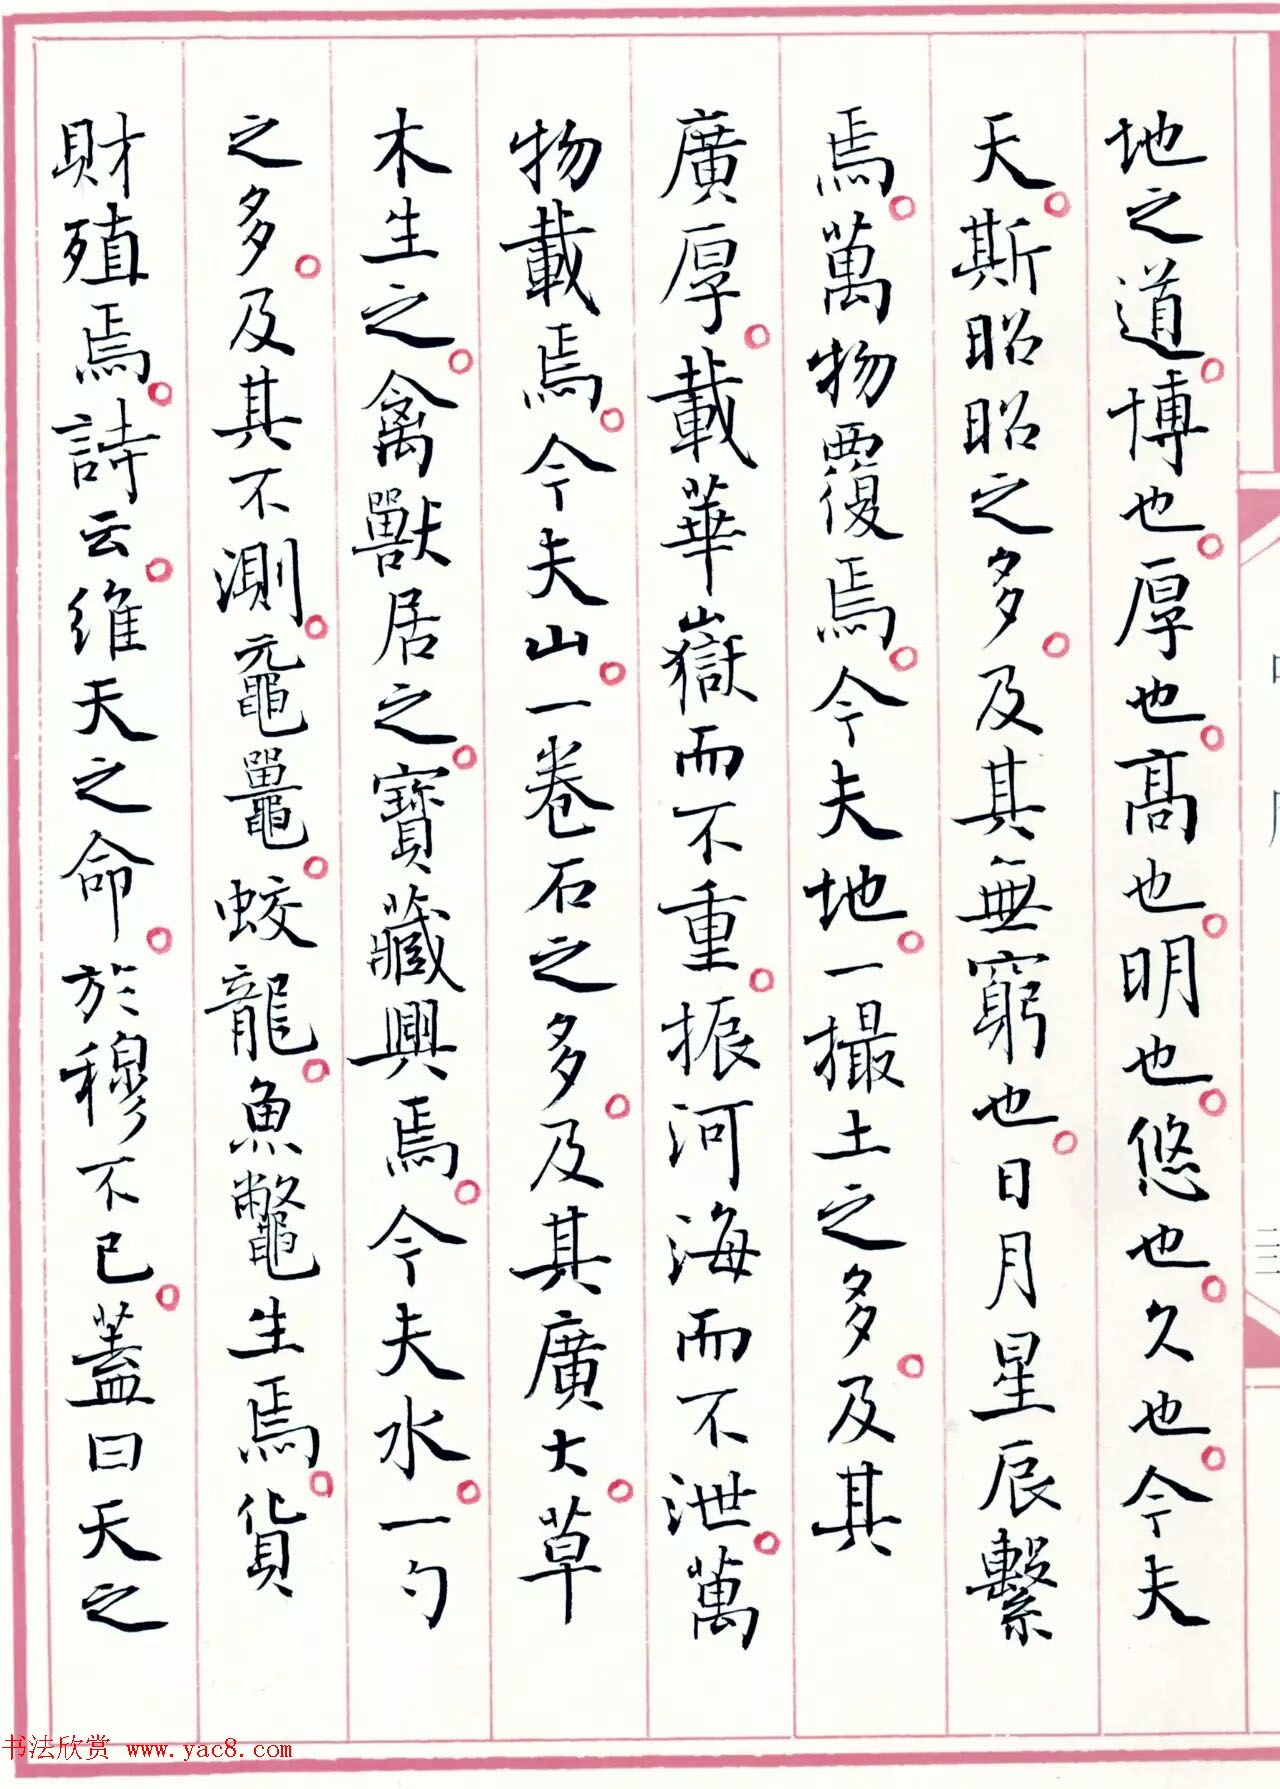 地之道。博也。厚也。高也。明也。悠也。久也。今夫
天。斯昭昭之多。及其無窮也。日月星辰繫
焉。萬物覆焉。今夫地。一撮土之多。及其
廣厚。載華嶽而不重。振河海而不泄。萬
物載焉。今夫山。一卷石之多。及其廣大。草
木生之。禽獸居之。寶藏興焉。今夫水。一勺
之多。及其不測。黿鼉。蛟龍。魚鼈生焉。貨
財殖焉。詩云。維天之命。於穆不已。蓋曰天之
书法欣赏 www.yac8.com